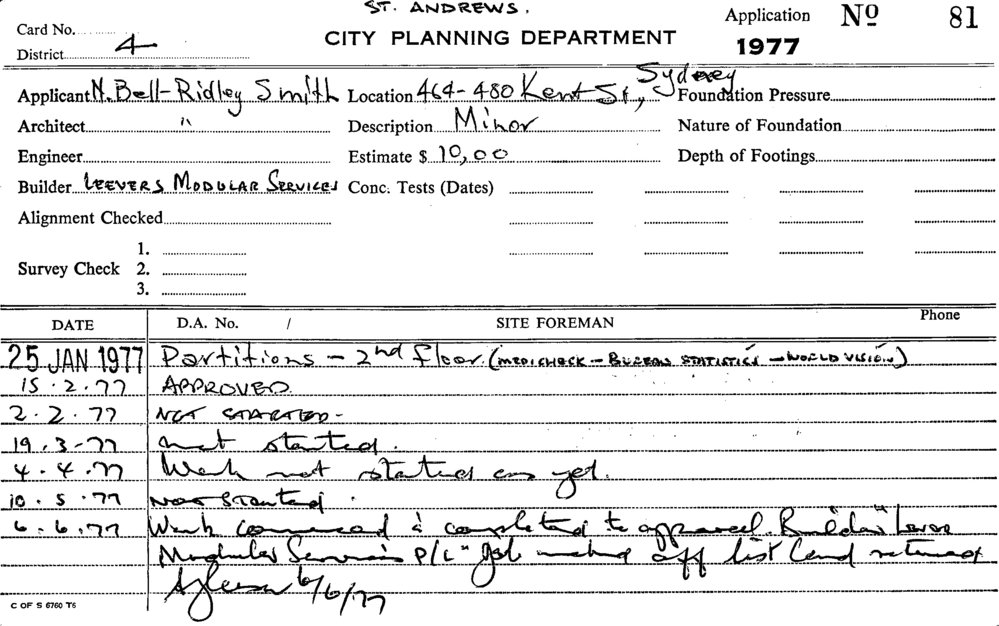 ST. ANDREWS.
Card No.
District 4
CITY PLANNING DEPARTMENT
Application Nº 81
1977
Applicant N. Bell-Ridley Smith Location 464-480 Kent St, Sydney Foundation Pressure
Architect " Description Minor Nature of Foundation
Engineer Estimate $ 10,00 Depth of Footings
Builder LEEVERS MODULAR SERVICES Conc. Tests (Dates)
Alignment Checked
Survey Check 1.
2.
3.
DATE D.A. No. / SITE FOREMAN Phone
25 JAN 1977 Partitions - 2nd floor. (MEDICHECK - BUREAU STATISTICS - WORLD VISION)
15.2.77 APPROVED.
2.2.77 NOT STARTED -
19.3-77 not started.
4.4.77 Work not started as yet.
10.5.77 NOT Started.
6.6.77 Work commenced & completed to approval. Builder "Levers
Modular Services P/L" Job marked off list Card returned
6/6/77
C OF S 6760 T6